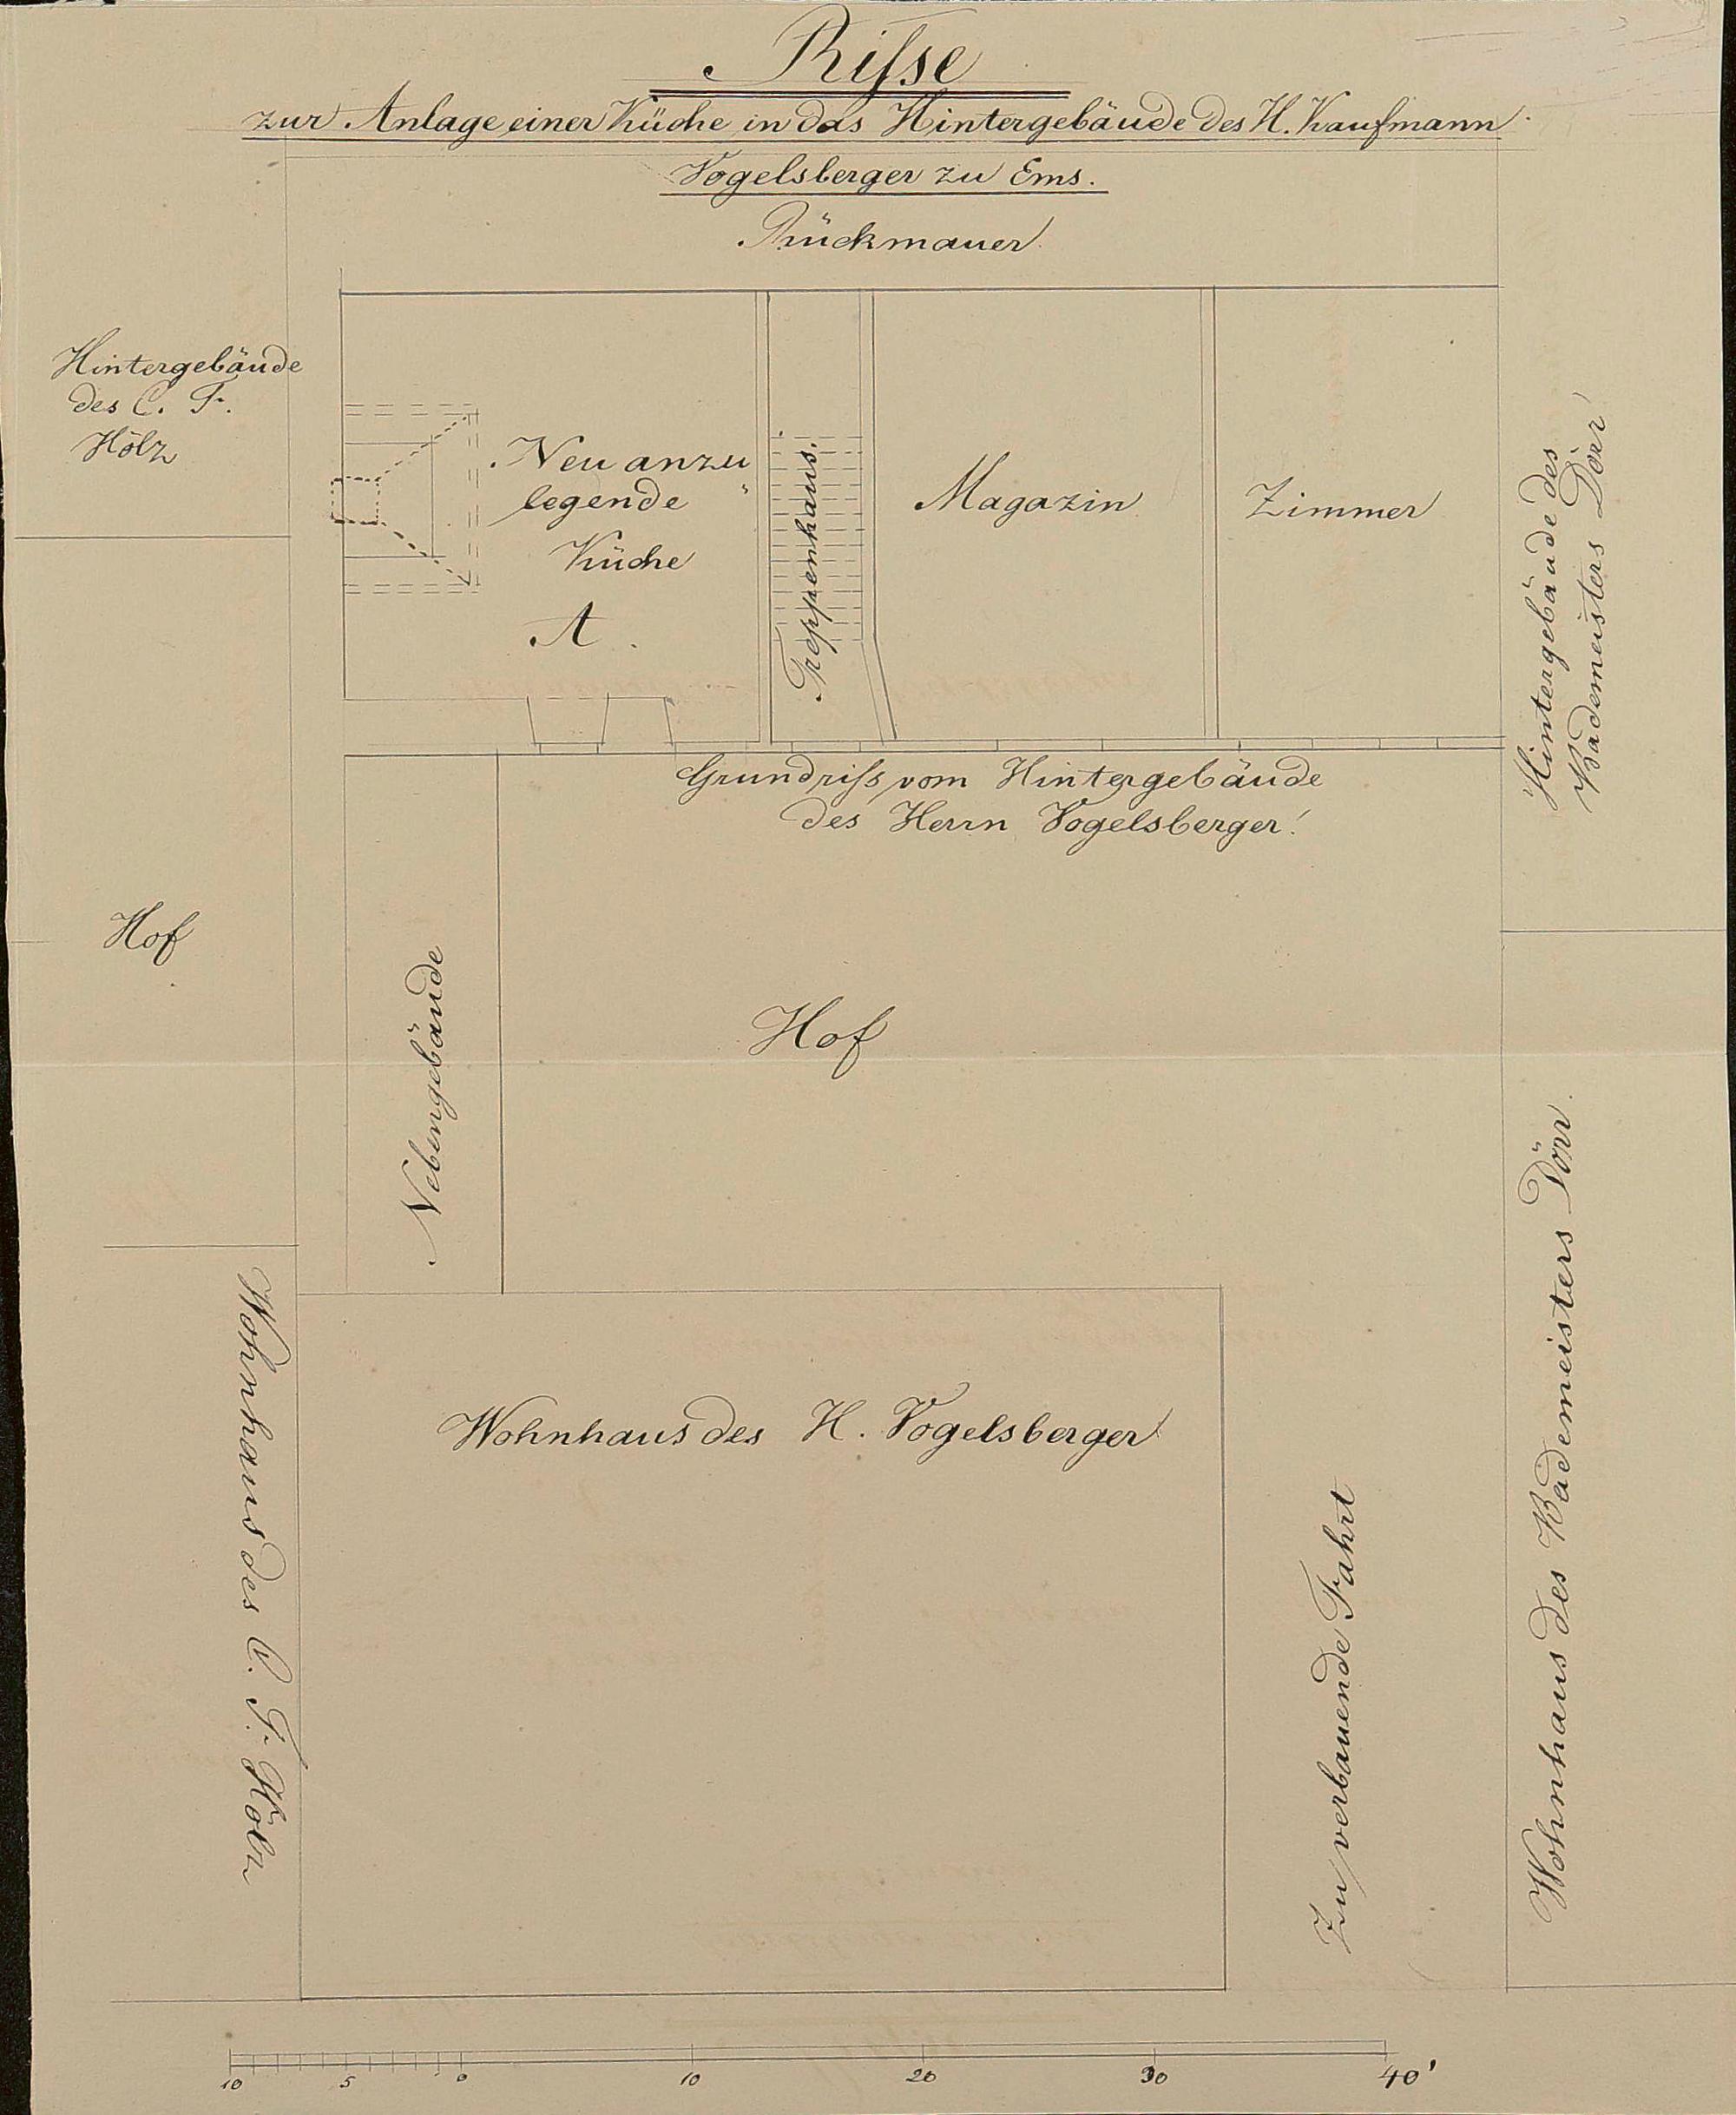 Riſse
zur Anlage einer Küche in das Hintergebäude des H. Kaufmann
Vogelsberger zu Ems.
Rückmauer
Hintergebäude
des C. F.
Hölz
Neu anzu
legende
Küche
A.
Treppenhaus.
Magazin
Zimmer
Hintergebäude des
Bademeisters Dörr
Grundriſs vom Hintergebäude
des Herrn Vogelsberger!
Hof
Nebengebäude
Hof
Wohnhaus des C. F. Hölz
Wohnhaus des H. Vogelsberger
Zu verbauende Fahrt
Wohnhaus des Bademeisters Dörr.
10 5 0 10 20 30 40'